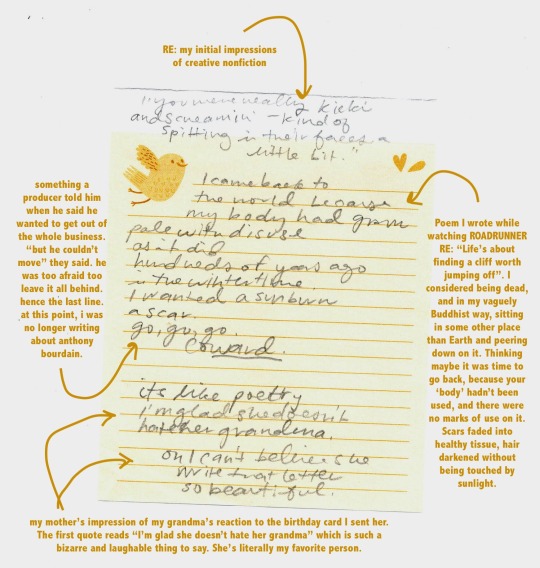 RE: my initial impressions
of creative nonfiction
"you were really kicki
and screamin' - kind of
spitting in their faces a
little bit."
I came back to
the world because
my body had grown
pale with disuse
as it did
hundreds of years ago
in the wintertime.
I wanted a sunburn
a scar.
go, go, go.
Coward.
its like poetry
I'm glad she doesn't
hate her grandma.
oh I can't believe she
write that letter
so beautiful.
something a
producer told him
when he said he
wanted to get out of
the whole business.
"but he couldn't
move" they said. he
was too afraid too
leave it all behind.
hence the last line.
at this point, i was
no longer writing
about anthony
bourdain.
Poem I wrote while
watching ROADRUNNER
RE: "Life's about
finding a cliff worth
jumping off". I
considered being dead,
and in my vaguely
Buddhist way, sitting
in some other place
than Earth and peering
down on it. Thinking
maybe it was time to
go back, because your
'body' hadn't been
used, and there were
no marks of use on it.
Scars faded into
healthy tissue, hair
darkened without
being touched by
sunlight.
my mother's impression of my grandma's reaction to the birthday card I sent her.
The first quote reads "I'm glad she doesn't hate her grandma" which is such a
bizarre and laughable thing to say. She's literally my favorite person.